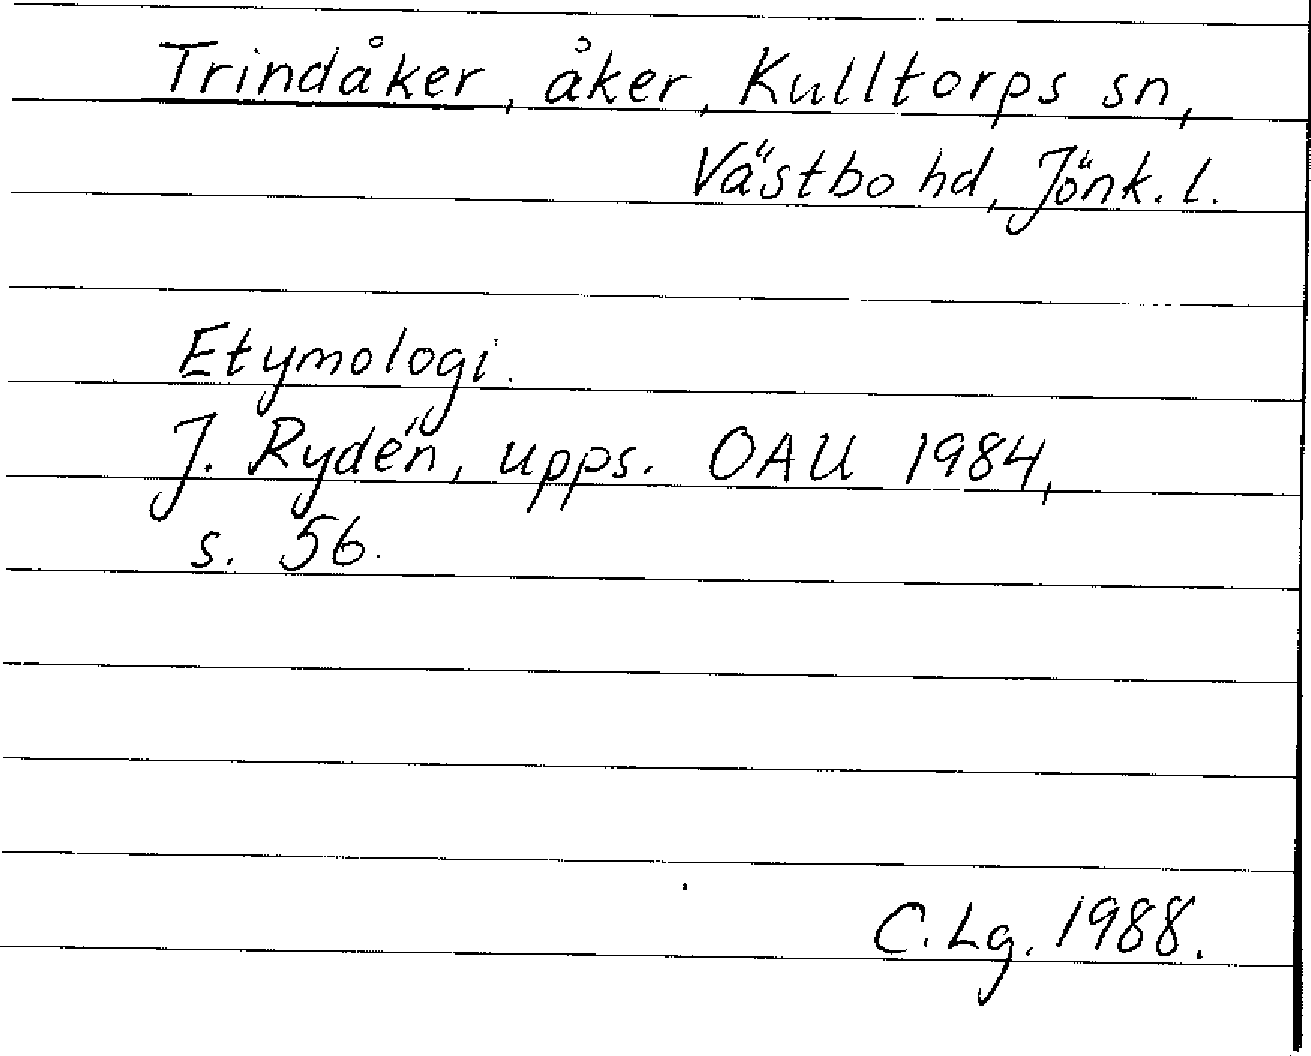 Trindåker, åker, Kulltorps sn,
Västbo hd, Jönk. l.
Etymologi.
J. Rydén, upps. OAU 1984,
s. 56.
C. Lg. 1988.